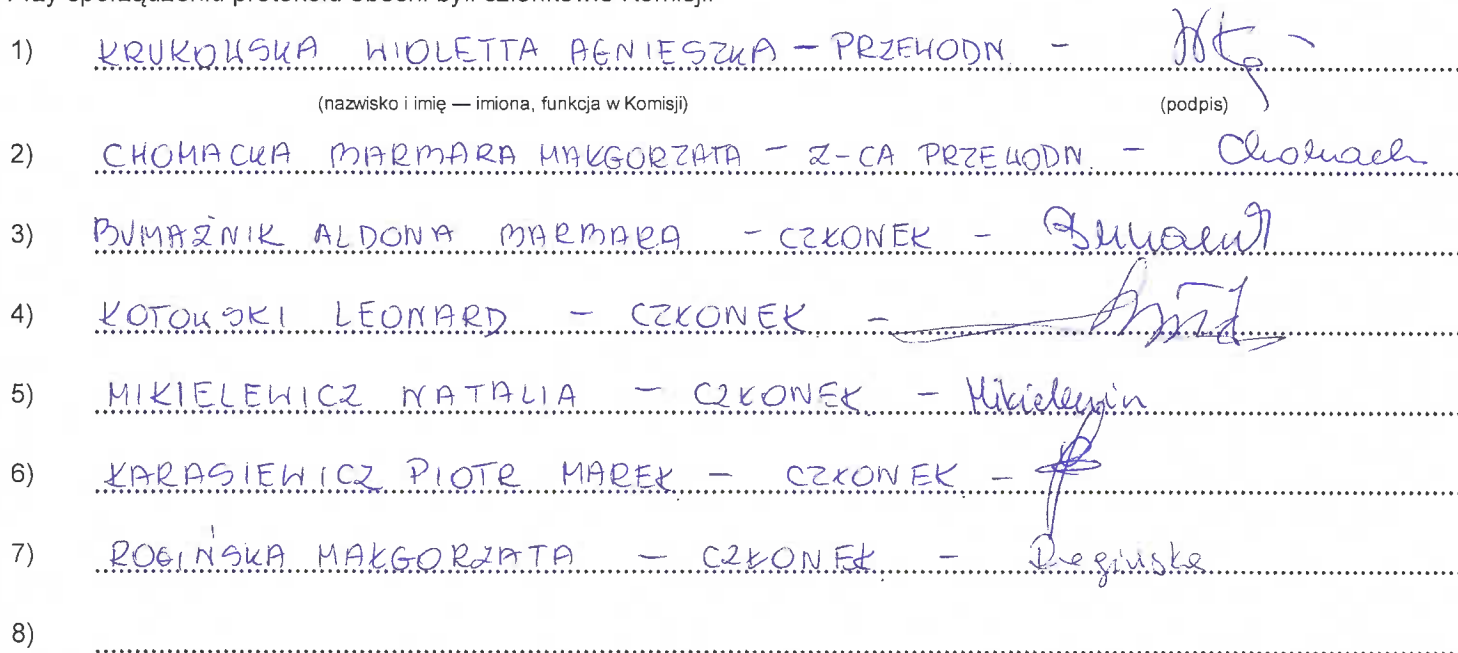 Przy sporządzeniu protokołu obecni byli członkowie Komisji:
1) KRUKOWSKA WIOLETTA AGNIESZKA – PRZEWODN –
(nazwisko i imię — imiona, funkcja w Komisji) (podpis)
2) CHOMACKA BARBARA MAŁGORZATA – Z-CA PRZEWODN. – Chomack
3) BUMAŹNIK ALDONA BARBARA – CZŁONEK –
4) KOTOWSKI LEONARD – CZŁONEK –
5) MIKIELEWICZ NATALIA – CZŁONEK – Mikielewicz
6) KARASIEWICZ PIOTR MAREK – CZŁONEK –
7) ROGIŃSKA MAŁGORZATA – CZŁONEK – Rogińska
8)